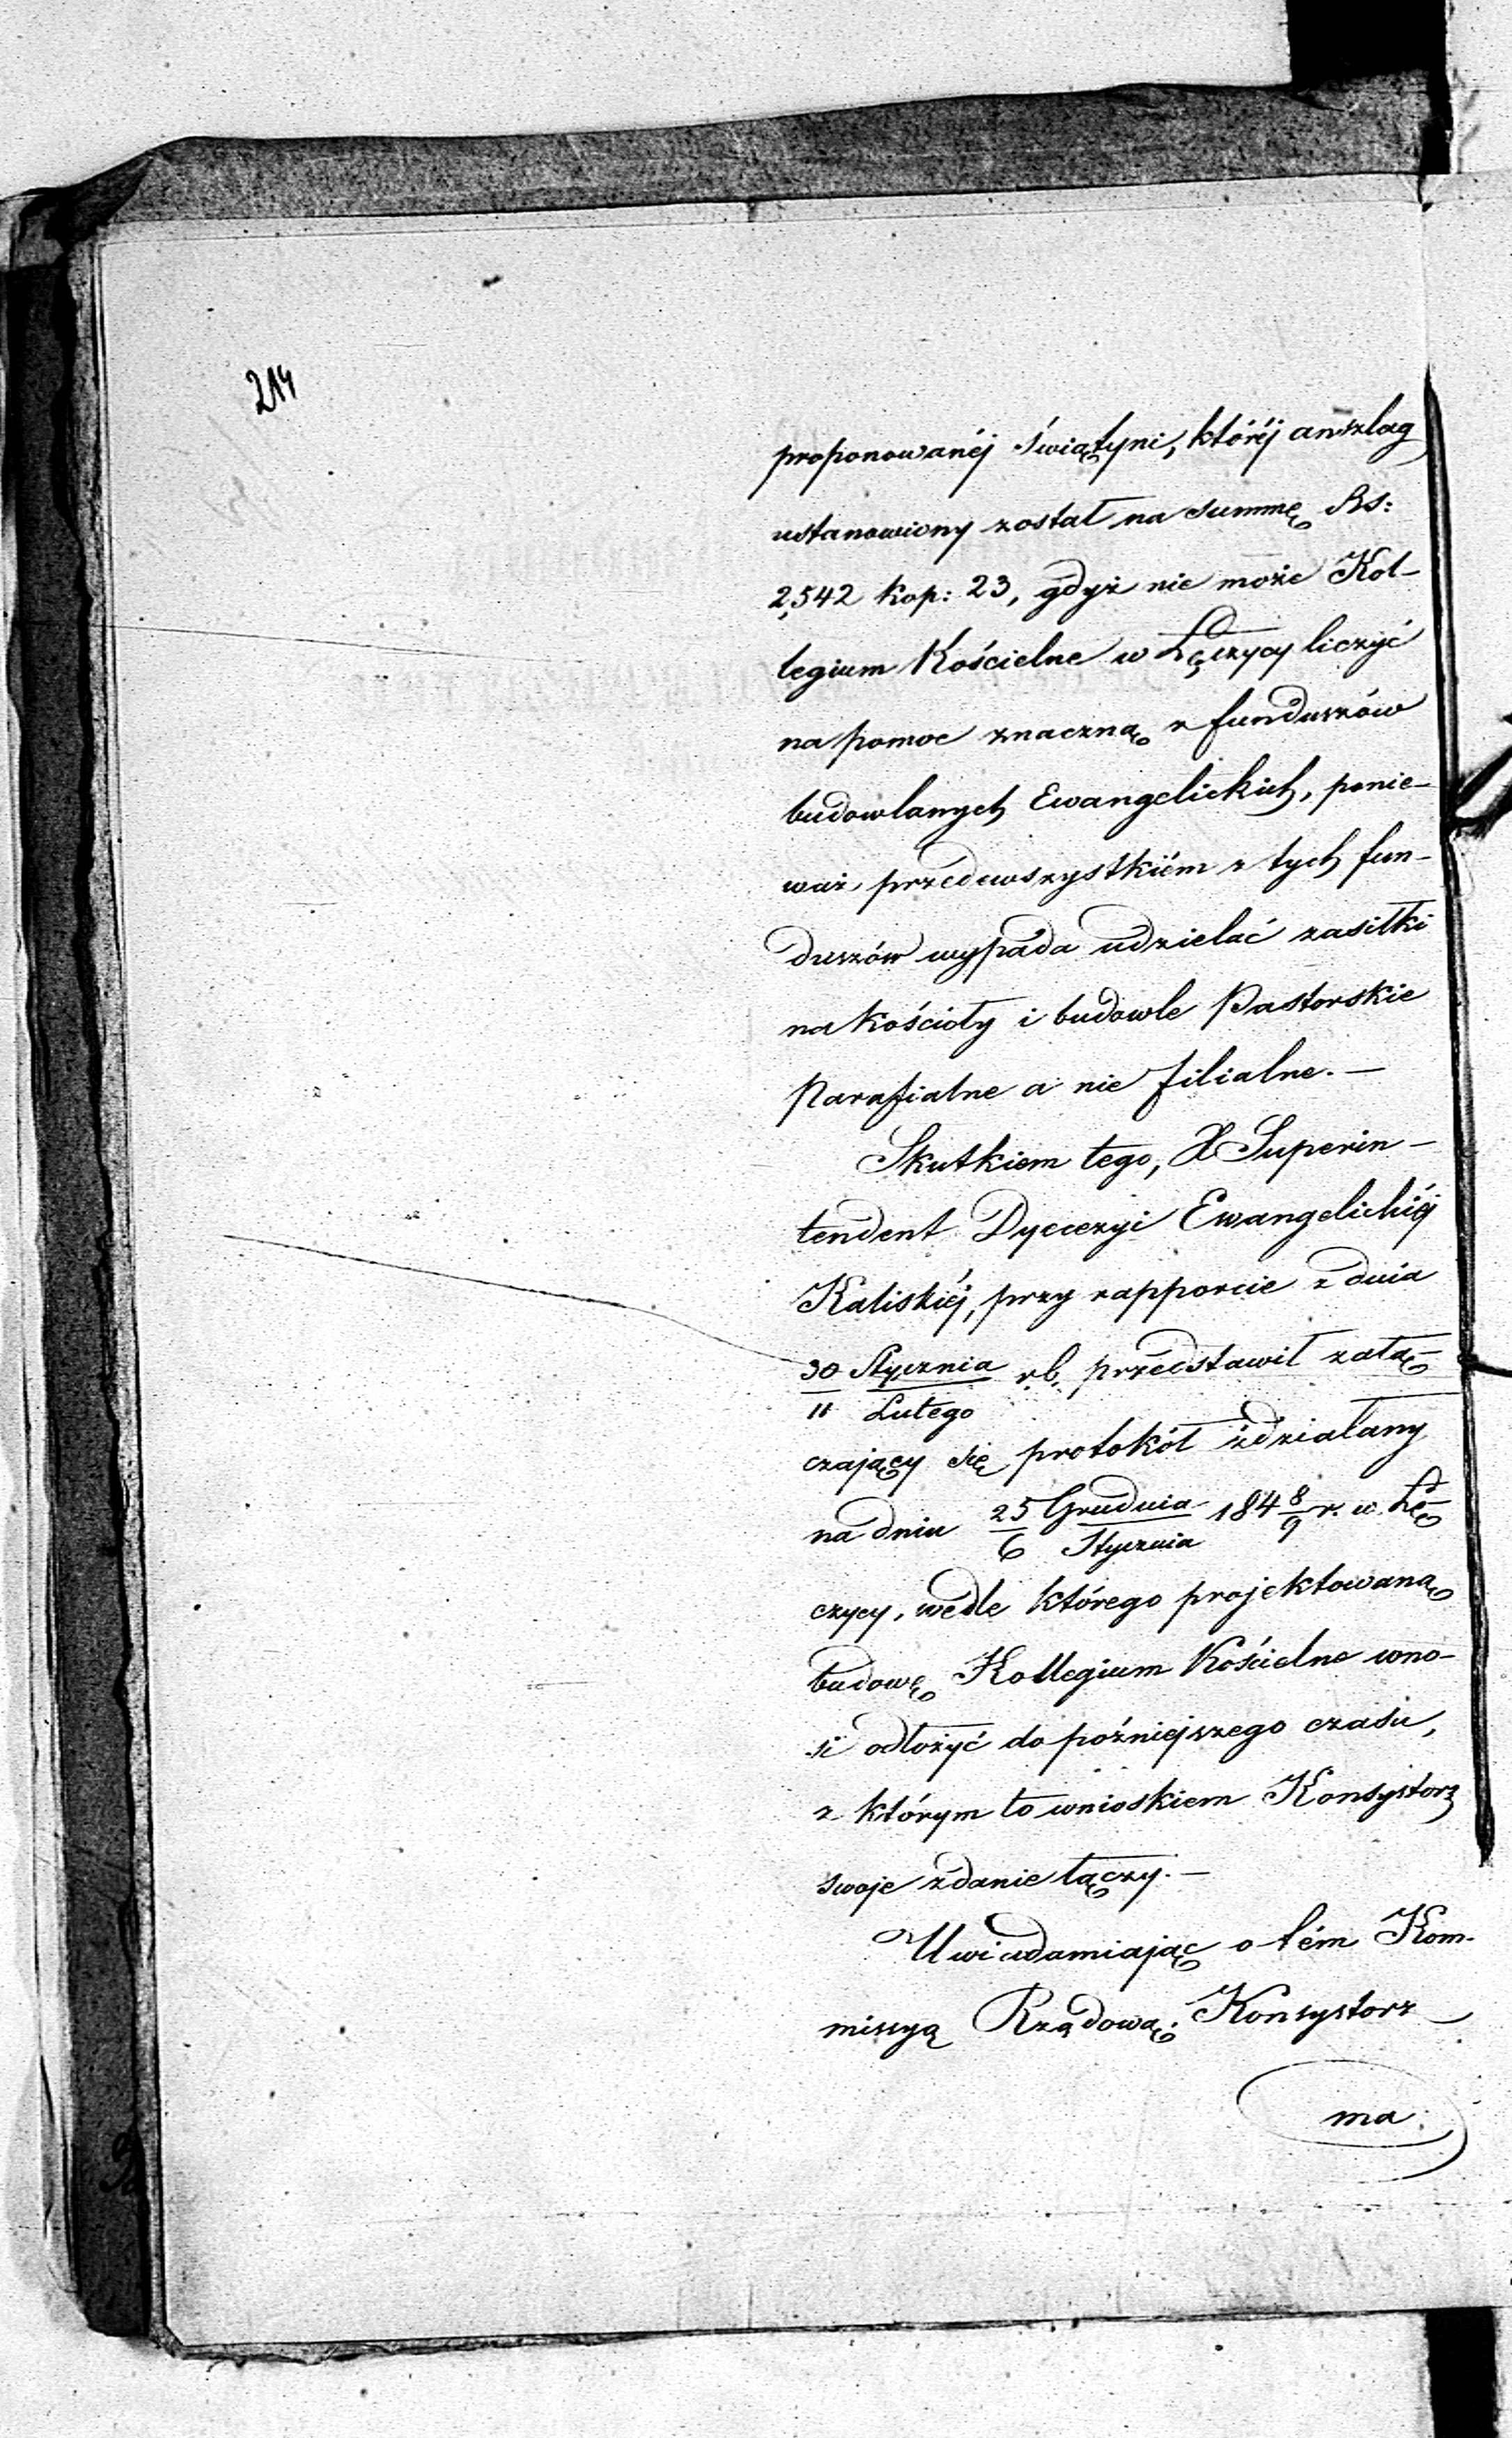 214
proponowanéj świątyni, któréj anszlag
ustanowiony został na summę Rs:
2,542 kop: 23, gdyż nie może Kol-
legium Kościelne w Łęczycy liczyć
na pomoc znaczną z funduszów
budowlanych Ewangelickich, ponie-
waż przedewszystkiém z tych fun-
duszów wypada udzielać zasiłki
na kościoły i budowle Pastorskie
Parafialne a nie filialne.—
Skutkiem tego, X Superin-
tendent Dyecezyi Ewangelickiéj
Kaliskiéj, przy rapporcie z dnia
30 Stycznia / 11 Lutego r.b. przedstawił załą-
czający się protokół zdziałany
na dniu 25 Grudnia / 6 Stycznia 184 8/9 r. w Łę-
czycy, wedle którego projektowaną
budowę Kollegium Kościelne wno-
si odłożyć do późniejszego czasu,
z którym to wnioskiem Konsystorz
swoje zdanie łączy.—
Uwiadamiając o tém Kom-
missyą Rządową; Konsystorz
ma